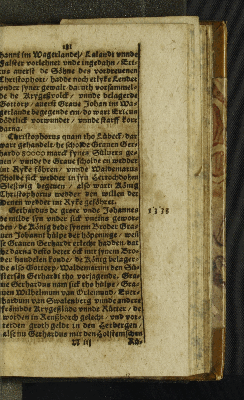 181
hanni im Wagerlande / Lalandt vnnde
Falster vorlehnet vnde ingedahn / Eri-
cus averst de Söhne des vordreuenen
Christophori / hadde noch etlyke Lender
vnder syner gewalt darvth vorsammel-
de he Krygeßvolck / vnnde belagerde
Gottorp / averst Graue Johan im Wa-
gerlande begegende em / do wart Ericus
dödtlick vorwundet / vnnde starff kort
darna.
Christophorus quam tho Lübeck / dar
wart gehandelt / he scholde Grauen Ger-
hardo 80000 marck synes Sülvers ge-
uen / vnnde de Graue scholde en wedder
int Ryke föhren / vnnde Waldemarus
scholde sick wedder in syn Hertochdohm
Sleßwig begeuen / also wart König
Christophorus wedder van willen der
Denen wedder int Ryke geföhret.
Gerhardus de grote vnde Johannes
de milde syn vnder sick vneins gewor-
den / de König bede synem Broder Gra-
uen Johannt hülpe der höpeninge / wen
se Grauen Gerhardt erlecht hadden / dat
he darna desto beter ock mit synem Bro-
der handelen konde / de König belager-
de also Gottorp / Waldemarum des Sü-
stersön Gerhardi tho vorjagende. Gra-
ue Gerhardus nam sick tho hülpe / Gra-
uen Wilhelmum van Oelemund / Euer-
hardum van Swalenberg vnnde andere
frömbde Krygeßlüde vnnde Rütter / de
worden in Renßborch gelecht / vnd vor-
terden groth geldt in den Herbergen /
also im Gerhardus mit den Holstenischen
1331
Rü-